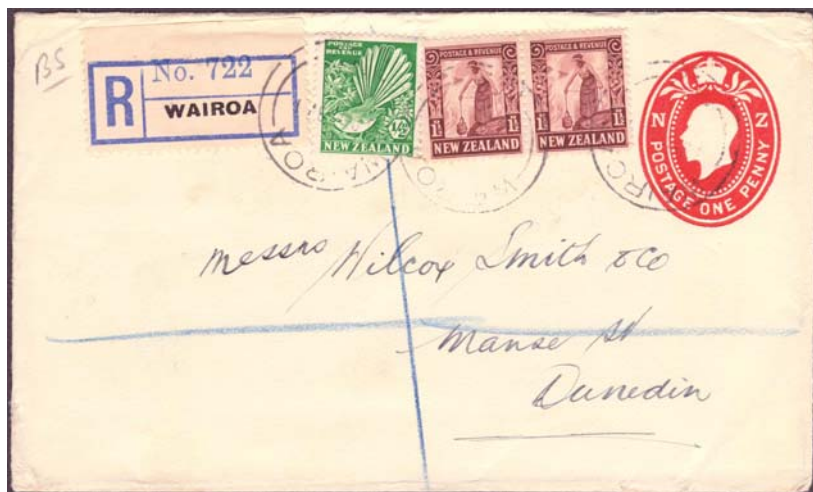 BS
R
No. 722
WAIROA
POSTAGE
AND
REVENUE
½D
NEW ZEALAND
POSTAGE & REVENUE
1½
NEW ZEALAND
POSTAGE & REVENUE
1½
NEW ZEALAND
N Z
POSTAGE ONE PENNY
WAIROA
Messrs Wilcox Smith & Co
Manse St
Dunedin